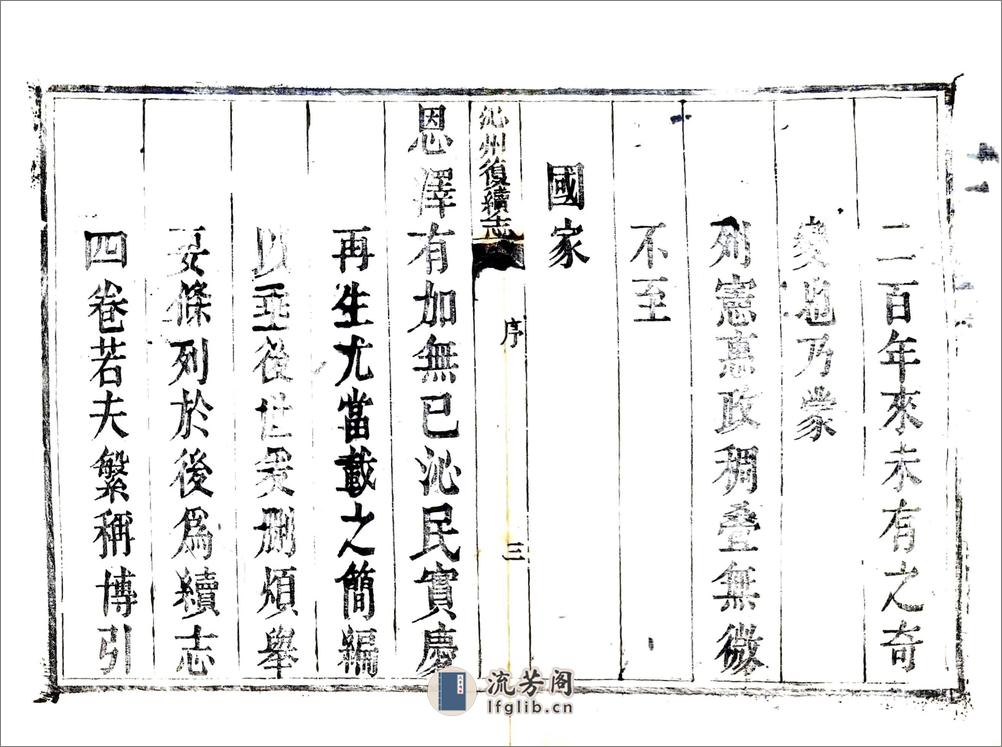 二百年來未有之奇
變也乃蒙
列憲惠政稠疊無微
不至
國家
沁州復續志
序
三
恩澤有加無已沁民實慶
再生尤當載之簡編
以垂後世爰刪煩舉
要條列於後爲續志
四卷若夫繁稱博引
流芳阁
lfglib.cn